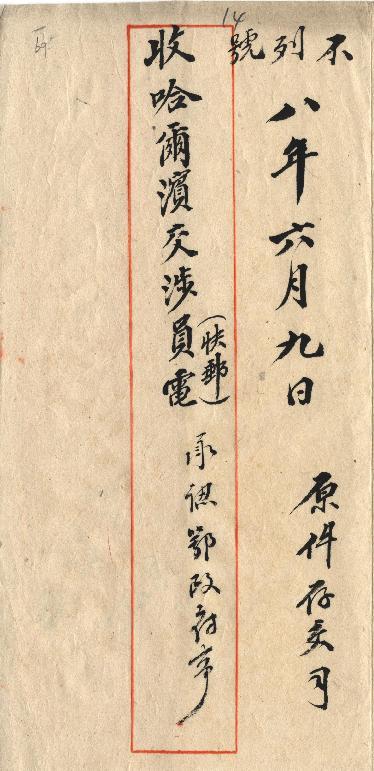 不列號
14
八年六月九日
原件存交司
收哈爾濱交涉員電（快郵）
承認鄂政府事